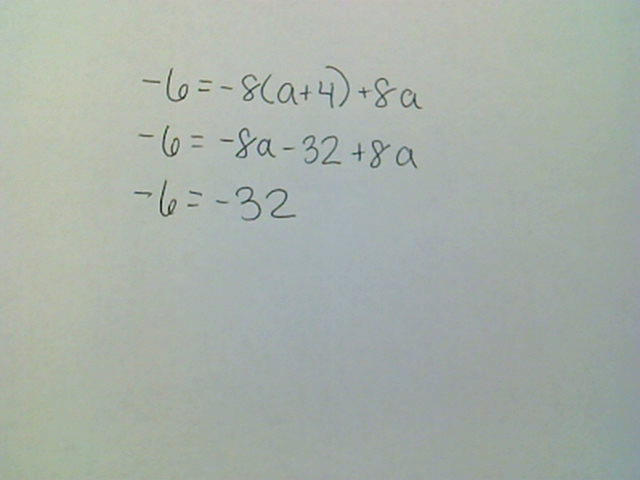 -6=-8(a+4)+8a
-6=-8a-32+8a
-6=-32